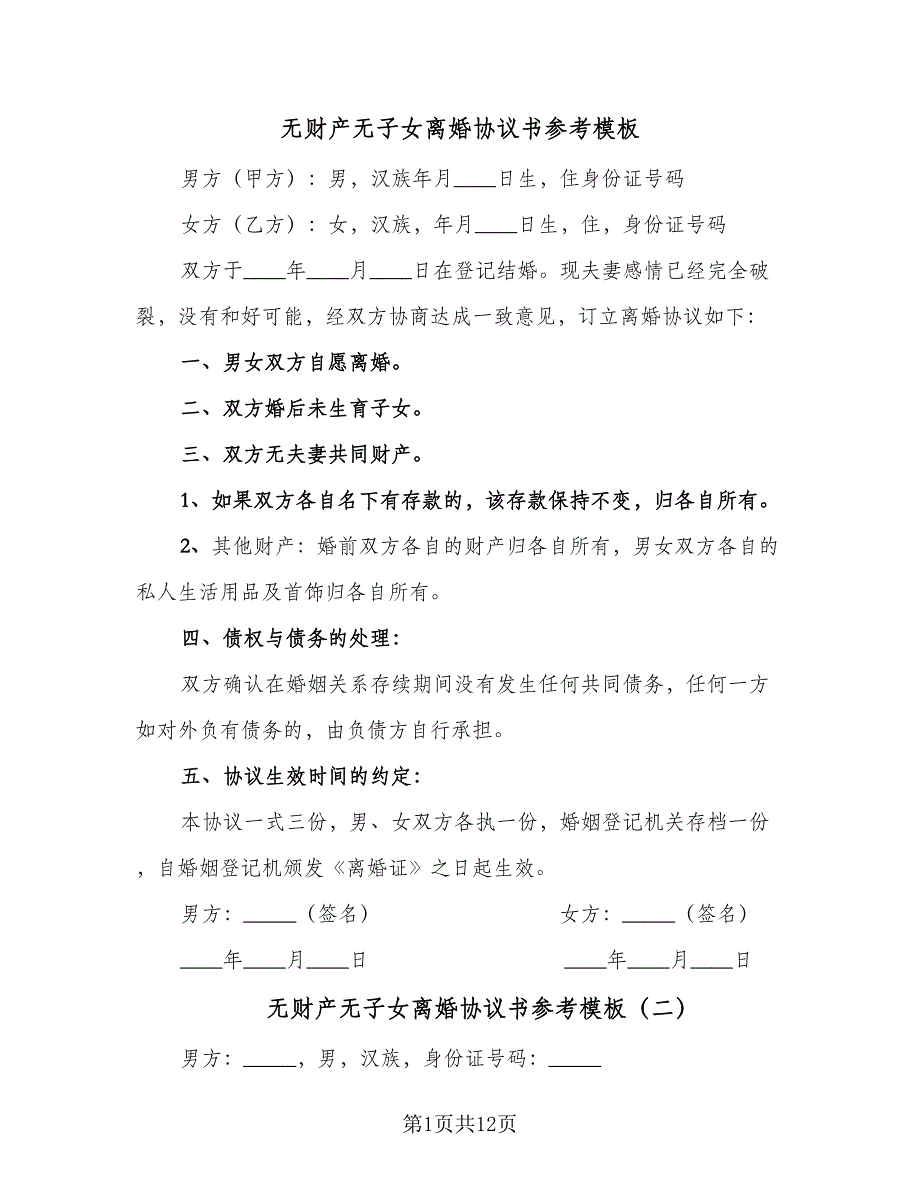 无财产无子女离婚协议书参考模板
男方（甲方）：男，汉族年月____日生，住身份证号码
女方（乙方）：女，汉族，年月____日生，住，身份证号码
双方于____年____月____日在登记结婚。现夫妻感情已经完全破
裂，没有和好可能，经双方协商达成一致意见，订立离婚协议如下：
一、男女双方自愿离婚。
二、双方婚后未生育子女。
三、双方无夫妻共同财产。
1、如果双方各自名下有存款的，该存款保持不变，归各自所有。
2、其他财产：婚前双方各自的财产归各自所有，男女双方各自的
私人生活用品及首饰归各自所有。
四、债权与债务的处理：
双方确认在婚姻关系存续期间没有发生任何共同债务，任何一方
如对外负有债务的，由负债方自行承担。
五、协议生效时间的约定：
本协议一式三份，男、女双方各执一份，婚姻登记机关存档一份
，自婚姻登记机颁发《离婚证》之日起生效。
男方：_____（签名） 女方：_____（签名）
____年____月____日 ____年____月____日
无财产无子女离婚协议书参考模板（二）
男方：_____，男，汉族，身份证号码：_____
第1页共12页